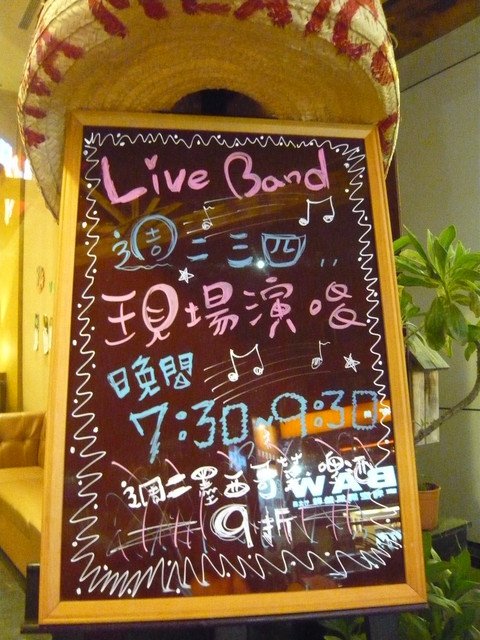 Live Band
週二三四..
現場演唆
晚間
7:30~9:30
週二墨西哥菜啤酒
9折